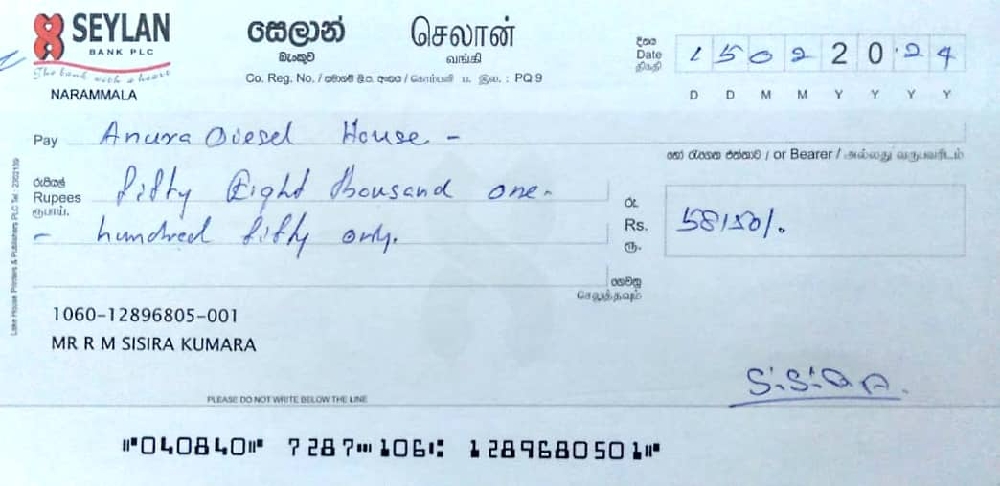 SEYLAN
BANK PLC
The bank with a heart
NARAMMALA
සෙලාන්
බැංකුව
செலான்
வங்கி
Co. Reg. No. / සමාගම් ලි.ප. අංකය / கொம்பனி ப. இல. : PQ 9
දිනය
Date
திகதி
1 5 0 2 2 0 2 4
D D M M Y Y Y Y
Pay Anura Diesel House -
හෝ රැගෙන එන්නාට / or Bearer / அல்லது வருபவரிடம்
රුපියල්
Rupees
ரூபாய்.
fifty Eight thousand one-
- hundred fifty only.
රු.
Rs.
ரூ.
58150/.
ගෙවනු
செலுத்தவும்
1060-12896805-001
MR R M SISIRA KUMARA
PLEASE DO NOT WRITE BELOW THE LINE
⑈040840⑈ 7287⑉106⑆ 1289680501⑈
Lake House Printers & Publishers PLC Tel : 2302159